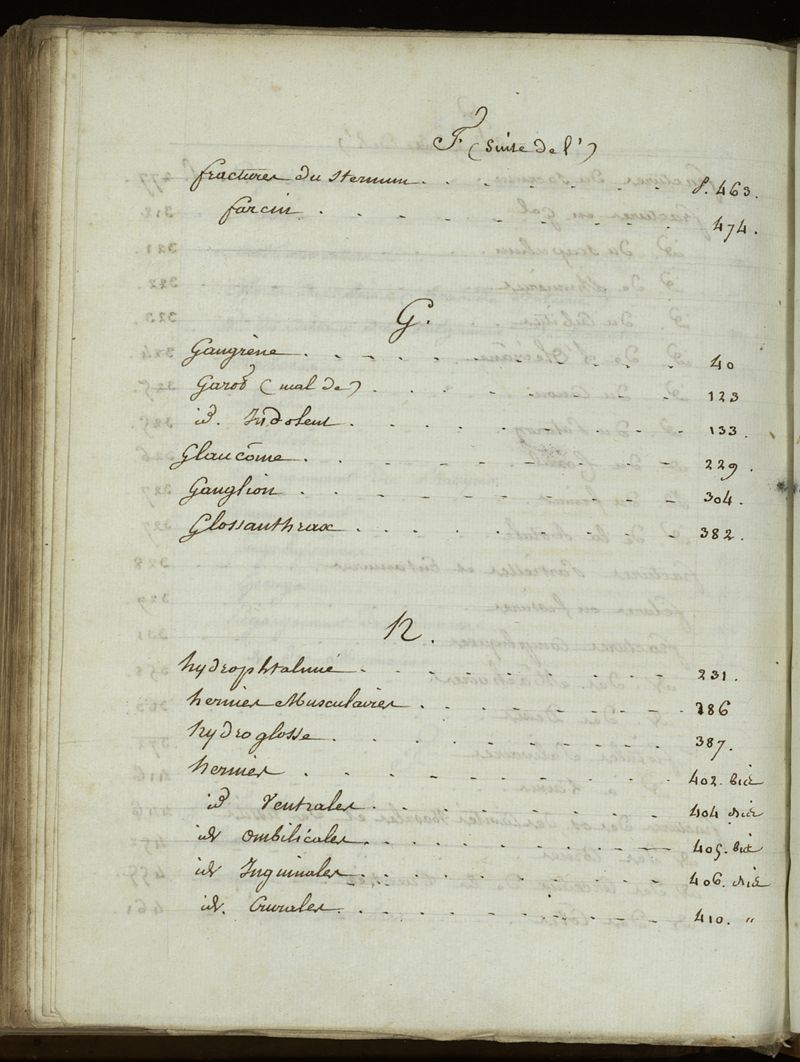 F (suite de l')
fractures du sternum . . . . . . . . p. 463.
farcin . . . . . . . . . . 474.
G.
Gangrène . . . . . . . . . . 40
Garot (mal de) . . . . . . . . 123
id. Indolent . . . . . . . . . 133.
Glaucôme . . . . . . . . . . 229.
Ganglion . . . . . . . . . . 304.
Glossanthrax . . . . . . . . . 382.
h.
hydrophtalmie . . . . . . . . . 231.
hernies Musculaires . . . . . . . 286
hydroglosse . . . . . . . . . 387.
hernies . . . . . . . . . . 402. bis
id Ventrales . . . . . . . . . 404 bis
id Ombilicales . . . . . . . . 405. bis
id Inguinales . . . . . . . . 406. bis
id. Crurales . . . . . . . . . 410. "